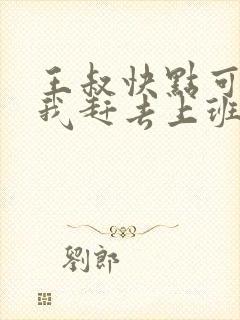 王叔快點可
我赶去上班
劉郎